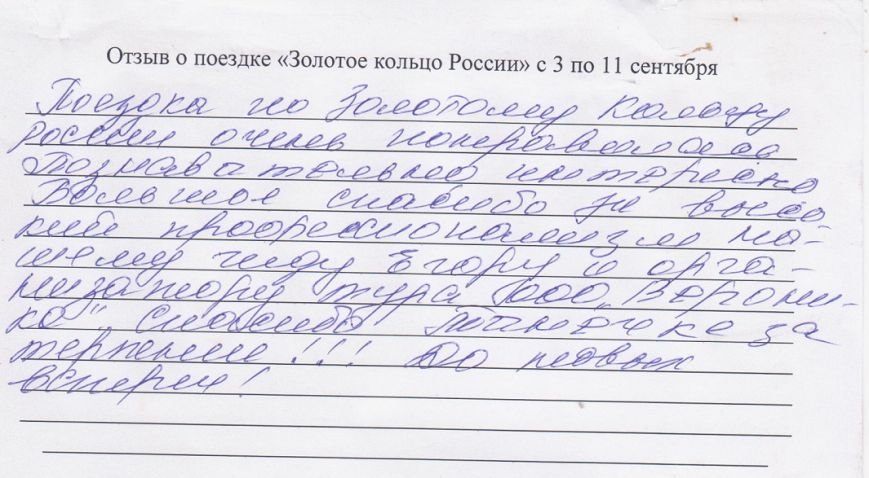 Отзыв о поездке «Золотое кольцо России» с 3 по 11 сентября
Поездка по Золотому Кольцу
России очень понравилась
Познавательно интересно
Большое спасибо за высо
кий профессионализм на-
шему гиду Егору и орга-
низатору тура ООО „Верони-
ка", спасибо Танечке за
терпение!!! До новых
встреч!